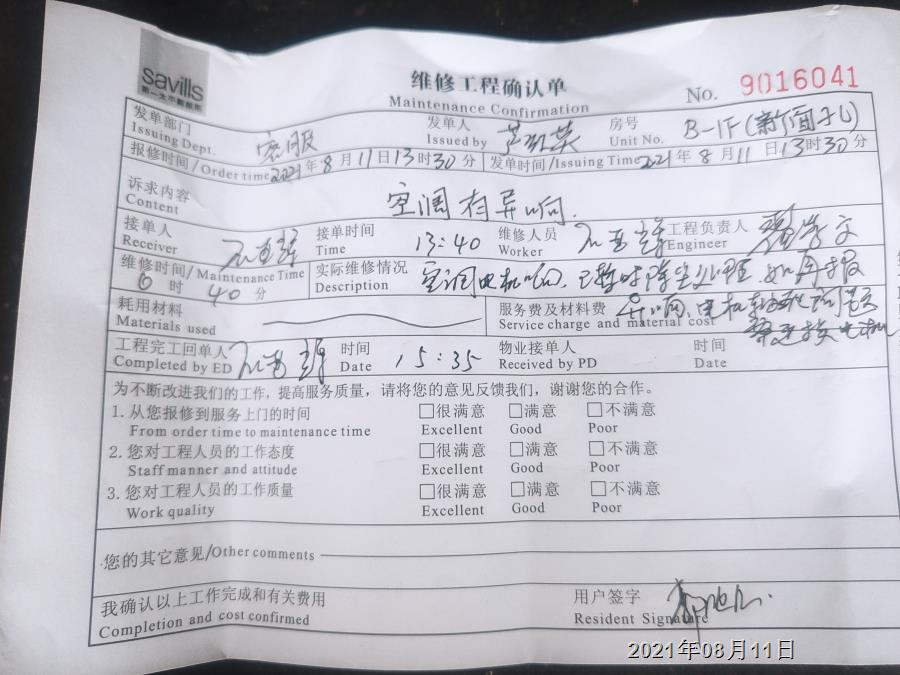 savills
第一太平戴维斯
维修工程确认单
Maintenance Confirmation
No. 9016041
发单部门 客服 发单人 房号 B-1F(新面孔)
Issuing Dept. Issued by Unit No.
报修时间/Order time 2021年8月11日13时30分 发单时间/Issuing Time 2021年8月11日13时30分
诉求内容 空调有异响.
Content
接单人 接单时间 13:40 维修人员 工程负责人
Receiver Time Worker Engineer
维修时间/Maintenance Time 实际维修情况 空调电机响,已暂时降尘处理,如再报
0时40分 Description
耗用材料 服务费及材料费 异响,电机
Materials used Service charge and material cost
工程完工回单人 时间 15:35 物业接单人 时间
Completed by ED Date Received by PD Date
为不断改进我们的工作,提高服务质量,请将您的意见反馈我们,谢谢您的合作。
1.从您报修到服务上门的时间 □很满意 □满意 □不满意
From order time to maintenance time Excellent Good Poor
2.您对工程人员的工作态度 □很满意 □满意 □不满意
Staff manner and attitude Excellent Good Poor
3.您对工程人员的工作质量 □很满意 □满意 □不满意
Work quality Excellent Good Poor
您的其它意见/Other comments
我确认以上工作完成和有关费用 用户签字
Completion and cost confirmed Resident Signature
2021年08月11日